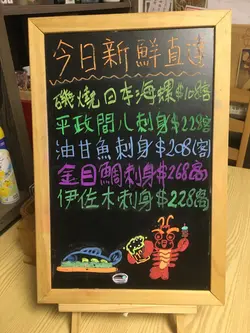 今日新鮮直送
磯燒日本海螺$108/客
平政間八刺身$228/客
油甘魚刺身$208(客)
金目鯛刺身$268/客
伊佐木刺身$228(客)